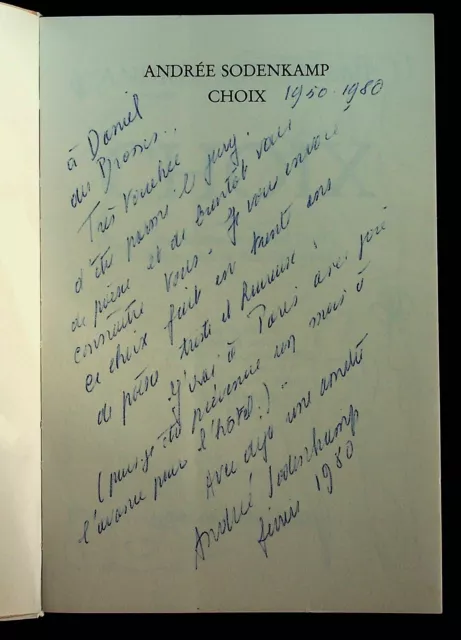 ANDRÉE SODENKAMP
CHOIX 1950-1980
à Daniel
des Brosses..
Très touchée
d'être parmi le jury
de poésie et de bientôt vous
connaître vous - Je vous envoie
ce choix fait en trente ans
de poésie triste et heureuse !
J'irai à Paris avec joie
(puis-je être prévenue un mois à
l'avance pour l'hôtel:)
Avec déjà une amitié
Andrée Sodenkamp
février 1980